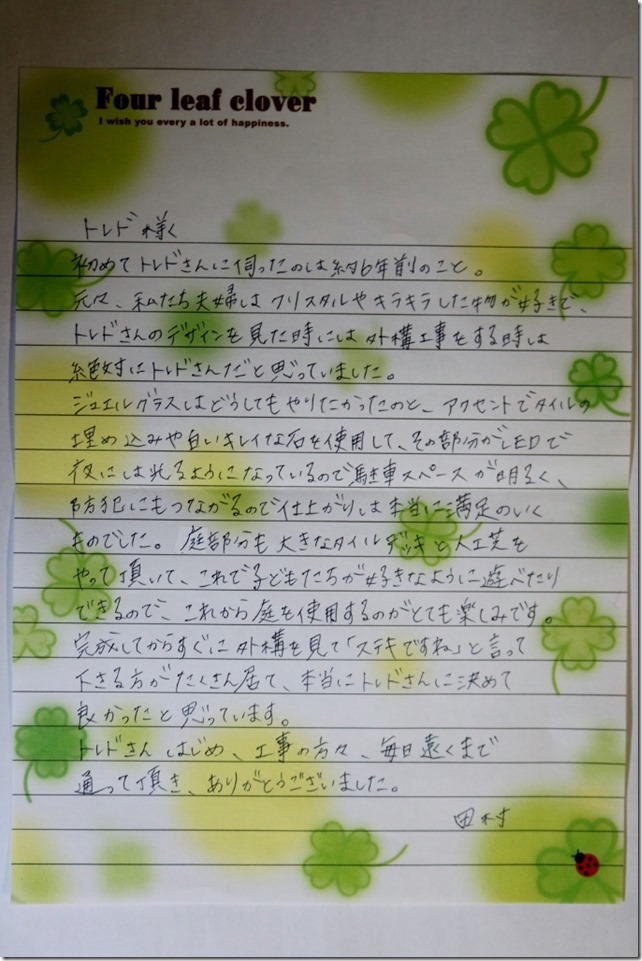 Four leaf clover
I wish you every a lot of happiness.
トレド様へ
初めてトレドさんに伺ったのは約6年前のこと。
元々、私たち夫婦はクリスタルやキラキラした物が好きで、
トレドさんのデザインを見た時には外構工事をする時は
絶対にトレドさんだと思っていました。
ジュエルグラスはどうしてもやりたかったのと、アクセントでタイルの
埋め込みや白いキレイな石を使用して、その部分がLEDで
夜には光るようになっているので駐車スペースが明るく、
防犯にもつながるので仕上がりは本当に満足のいく
ものでした。庭部分も大きなタイルデッキと人工芝を
やって頂いて、これで子どもたちが好きなように遊べたり
できるので、これから庭を使用するのがとても楽しみです。
完成してからすぐに外構を見て「ステキですね」と言って
下さる方がたくさん居て、本当にトレドさんに決めて
良かったと思っています。
トレドさんはじめ、工事の方々、毎日遠くまで
通って頂き、ありがとうございました。
田村